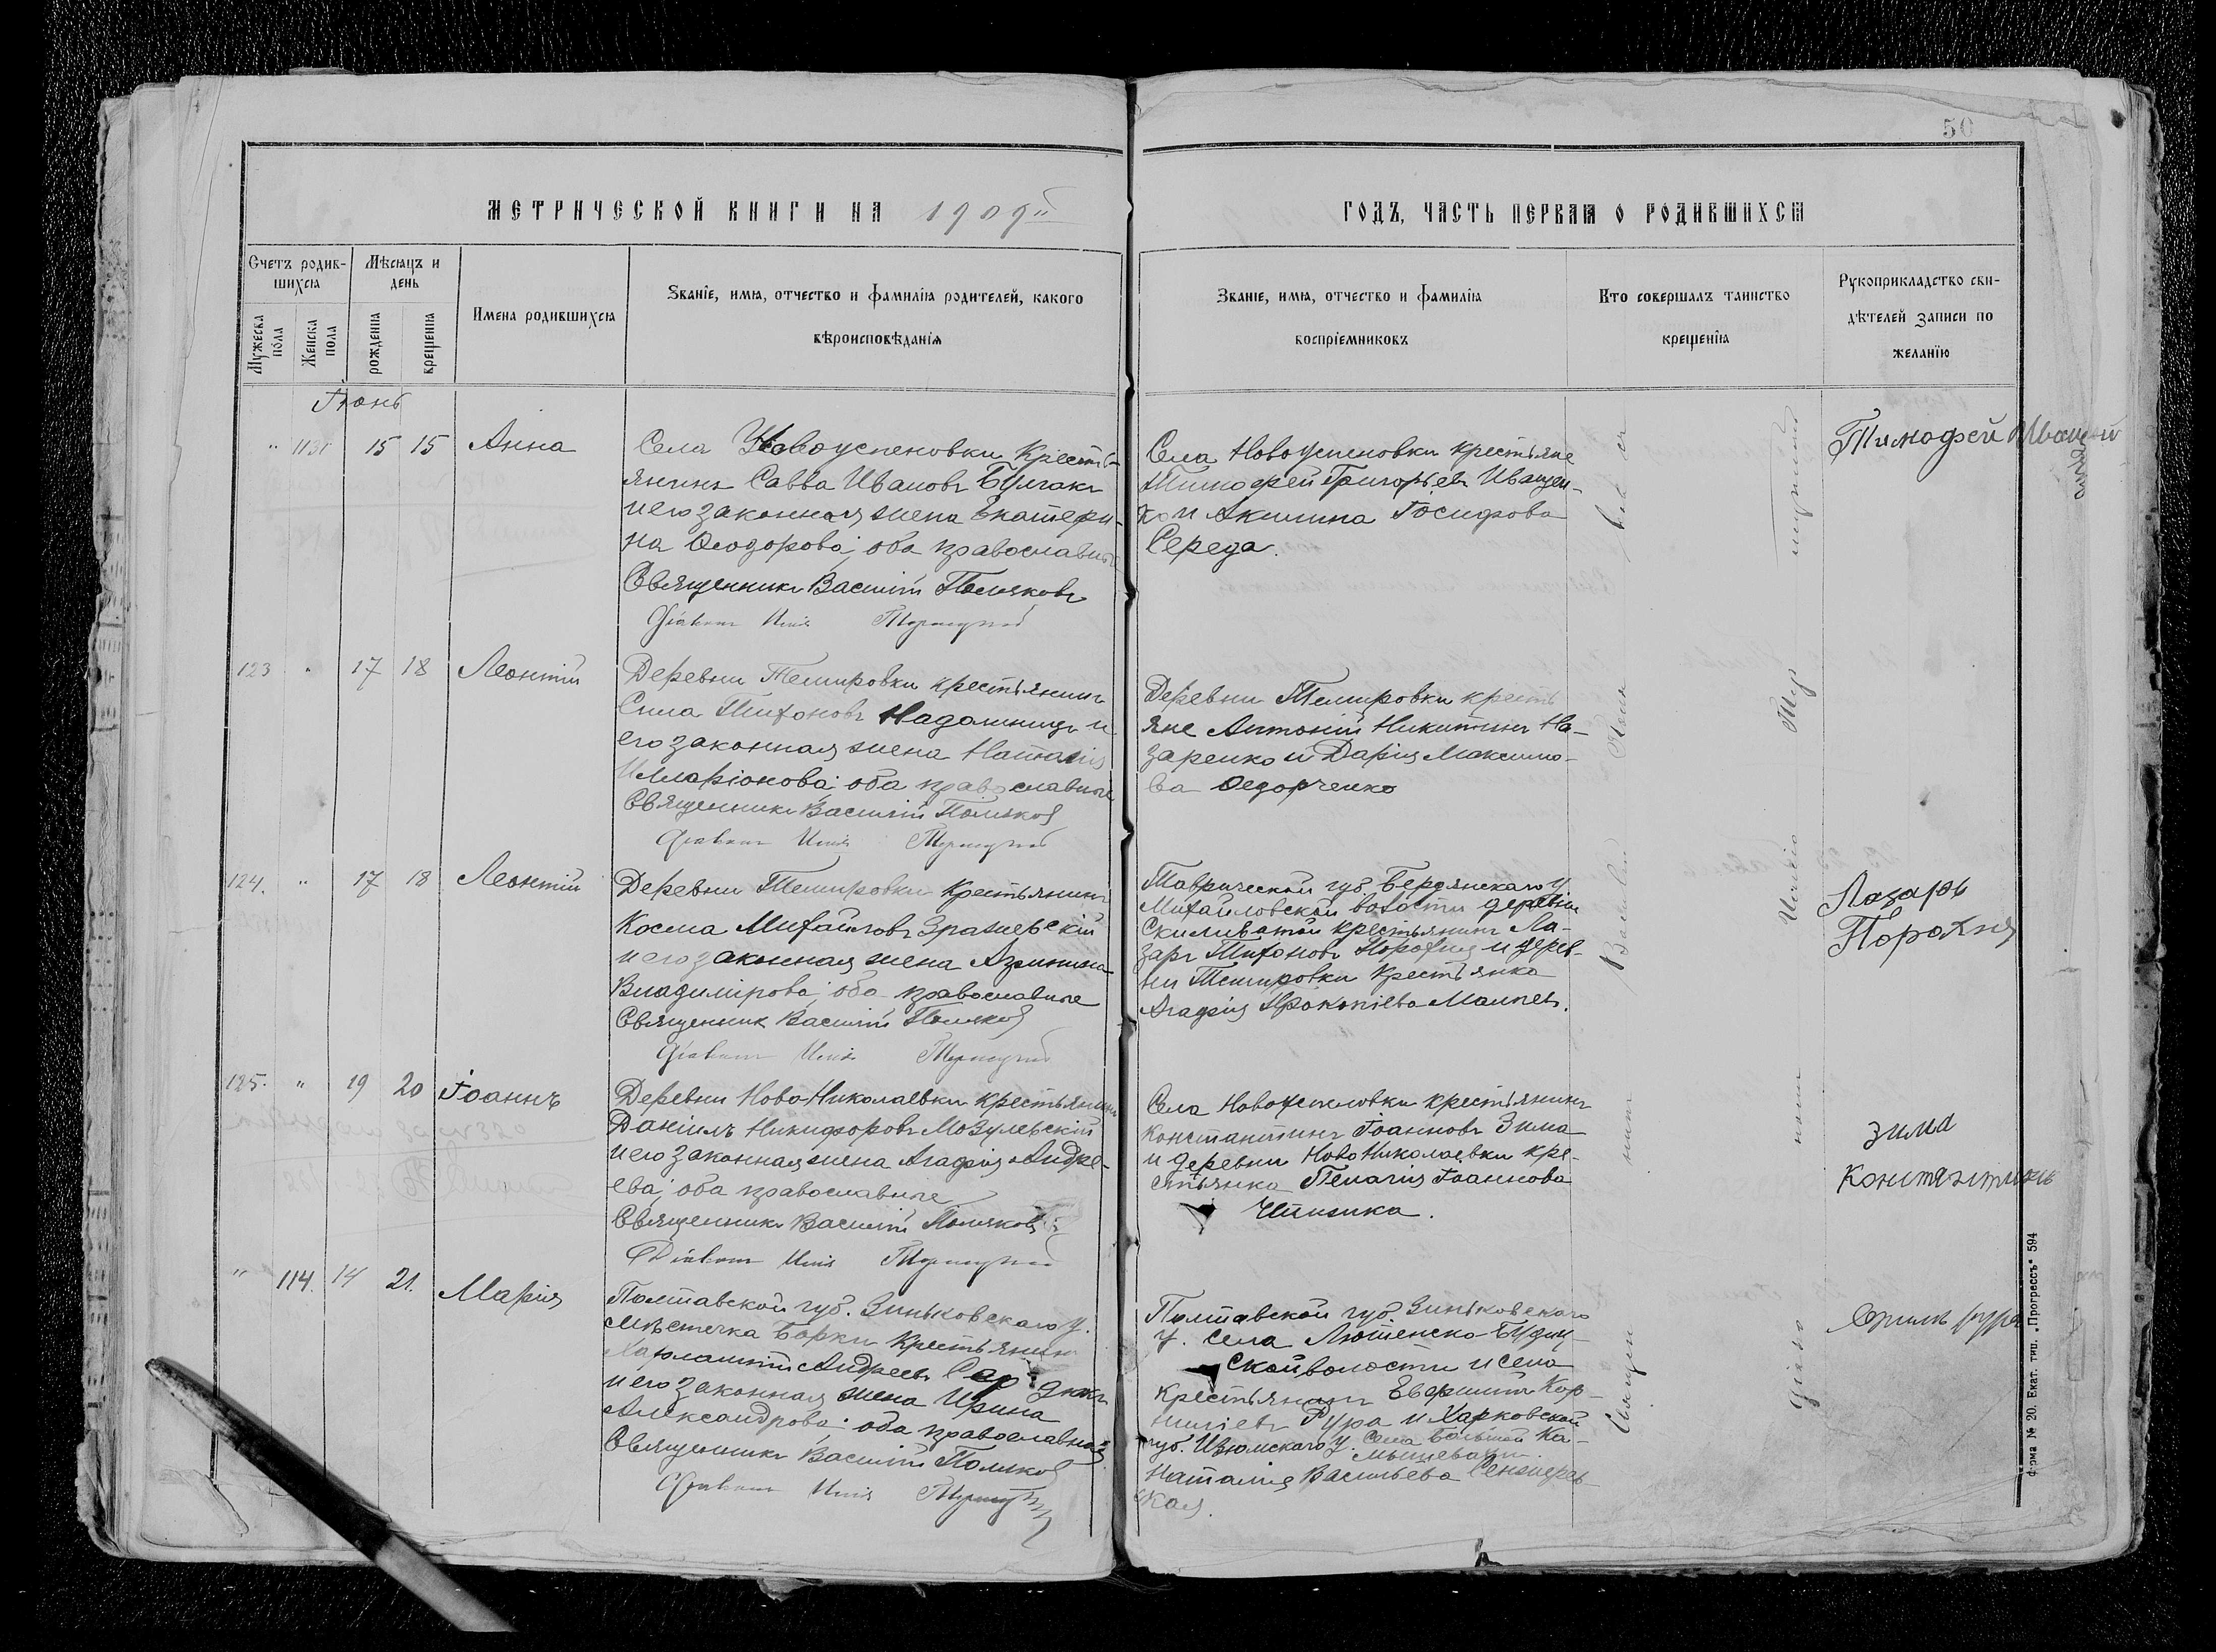 50
МЕТРИЧЕСКОЙ КНИГИ НА 1909й
ГОДЪ, ЧАСТЬ ПЕРВАЯ О РОДИВШИХСЯ
Счетъ родив-
шихся
Мужеска
пола
Женска
пола
Мѣсяцъ и
день
рожденія
крещенія
Имена родившихся
Званіе, имя, отчество и фамилія родителей, какого
вѣроисповѣданія
Званіе, имя, отчество и фамилія
воспріемниковъ
Кто совершалъ таинство
крещенія
Рукоприкладство сви-
дѣтелей записи по
желанію
Іюнь
" 113 15 15 Анна
Села Новоуспеновки Кресть-
янинъ Савва Ивановъ Булгакъ
и его законная жена Екатери-
на Ѳеодорова; оба православные
Священникъ Василій Поляковъ
Діаконъ Илія
Села Новоуспеновки крестьяне
Тимофей Григорьевъ Иващен-
ко и Акилина Іосифова
Середа.
Тимофей
123 " 17 18 Леонтій
Деревни Темировки крестьянинъ
Сила Тихоновъ и
его законная жена Наталія
Илларіонова; оба православные
Священникъ Василій Поляковъ
Діаконъ Илія
Деревни Темировки кресть
яне Антоній Никитинъ На-
заренко и Дарія Максимо-
ва Ѳедорченко
124. " 17 18 Леонтій
Деревни Темировки Крестьянинъ
Косма Михайловъ
и его законная жена
Владимірова; оба православные
Священникъ Василій Поляковъ
Діаконъ Илія
Таврической губ. Бердянскаго у.
Михайловской волости деревни
крестьянинъ Ла-
зарь Тихоновъ Порохня и дерев-
ни Темировки Крестьянка
Агафія Прокопіева
Лазарь
Порохня
125. " 19 20 Іоаннъ
Деревни Ново-Николаевки крестьянинъ
Даніилъ Никифоровъ Мозулевскій
и его законная жена Агафія Андре-
ева; оба православные
Священникъ Василій Поляковъ
Діаконъ Илія
Села Новоуспеновки крестьянинъ
Константинъ Іоанновъ Зима
и деревни НовоНиколаевки кре-
стьянка Пелагія Іоаннова
Зима
Константинъ
" 114. 14 21. Марія
Полтавской губ. Зиньковскаго у.
мѣстечка Борки Крестьянинъ
Андреевъ
и его законная жена Ирина
Александрова; оба православные
Священникъ Василій Поляковъ
Діаконъ Илія
Полтавской губ. Зиньковскаго
у. села Лютенско-Будищ-
ской волости и села
Крестьянинъ Евфимій Кор-
ниліевъ Рура и Харковской
губ. Изюмскаго у. Села Большой Ка-
мышевахи
Наталія Васильева
кая.
Священникъ Василій
Діаконъ Илія
Форма № 20. Екат. тип. „Прогрессъ“ 594